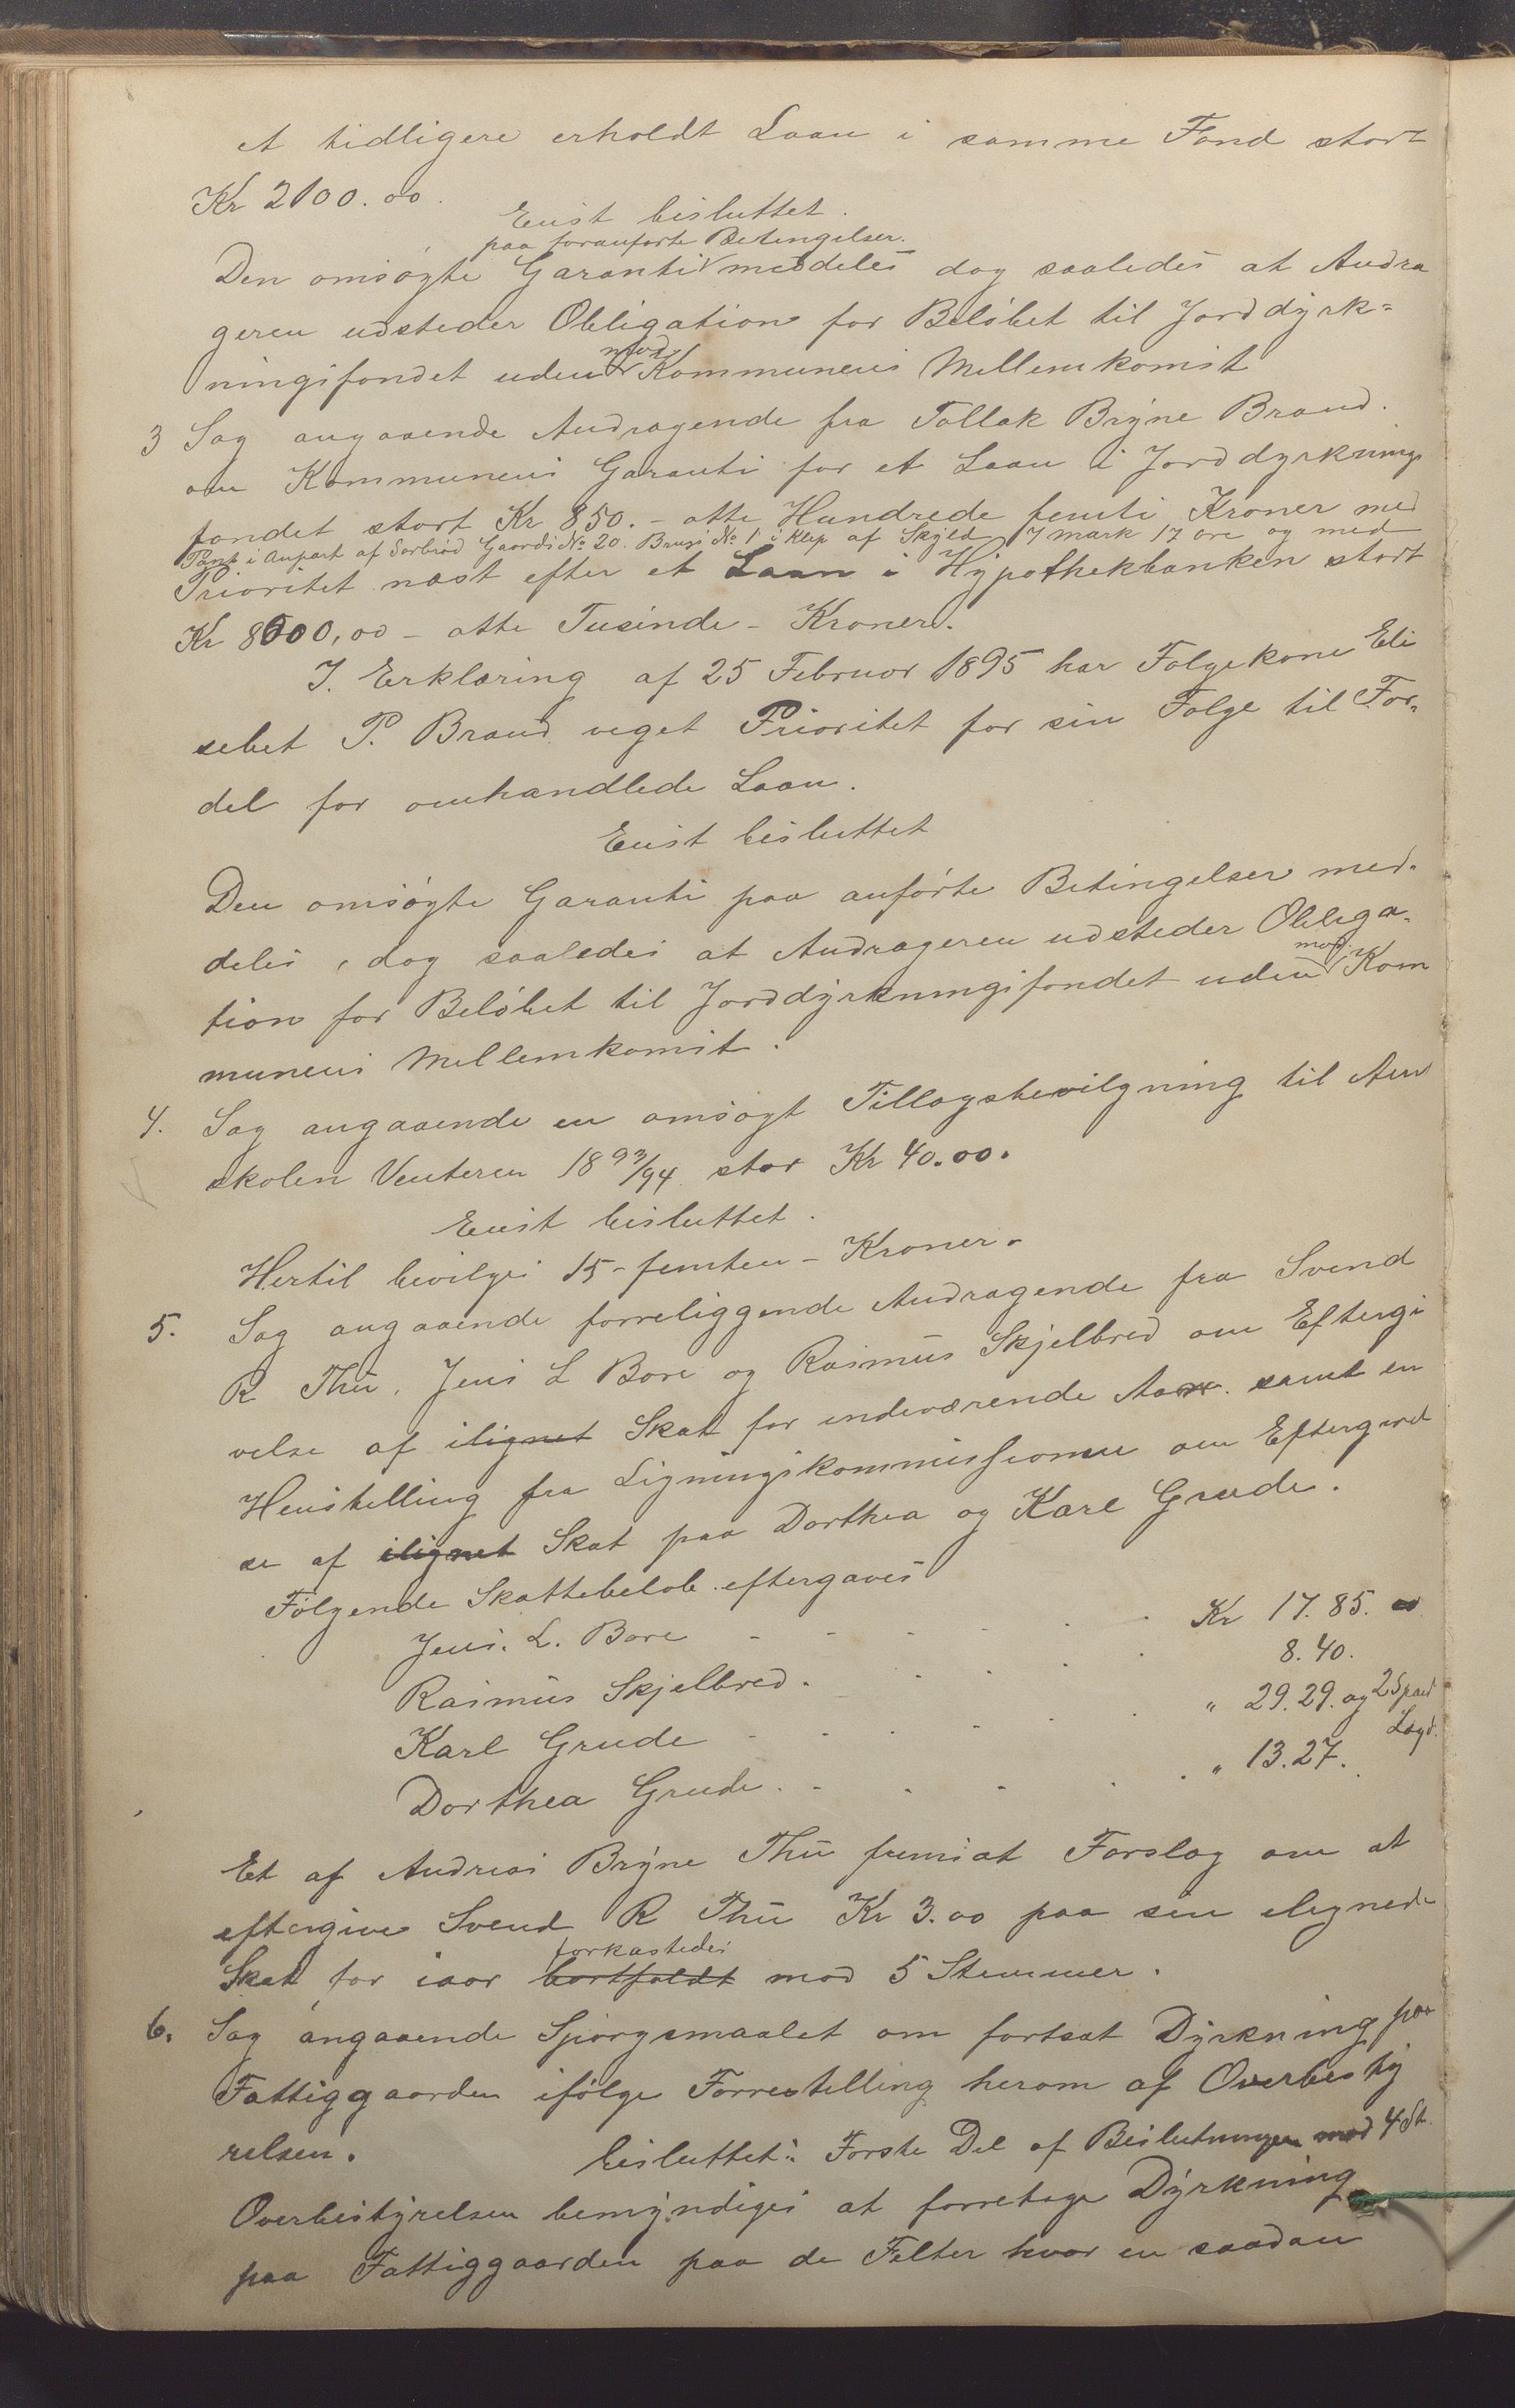 et tidligere erholdt Laan i samme Fond stort
Kr 2100.00.
Enst besluttet.
paa foranførte Betingelser.
Den omsøgte Garanti meddeles dog saaledes at Andra
geren udsteder Obligation for Beløbet til Jorddyrk=
mod
ningsfondet uden Kommunens Mellemkomst
3 Sag angaaende Andragende fra Tollak Bryne Braud.
om Kommunens Garanti for et Laan i Jorddyrknings
fondet stort Kr 850.- otte Hundrede femti Kroner med
Pant i Anpart af Sørbrød Gaards No 20. Brugs No 1 i Klep af Skyld 7 mark 17 øre og med
Prioritet næst efter et Laan i Hypothekbanken stort
Kr 8000,00 - otte Tusinde - Kroner.
I. Erklæring af 25 Februar 1895 har Folgekone Eli
sebet P. Braud veget Prioritet for sin Folge til For-
del for omhandlede Laan.
Enst besluttet
Den omsøgte Garanti paa anførte Betingelser med-
deles, dog saaledes at Andrageren udsteder Obliga-
mod
tion for Beløbet til Jorddyrkningsfondet uden Kom
munens Mellemkomst.
4. Sag angaaende en omsøgt Tillægsbevilgning til Aen
skolen Venteren 1893/94 stor Kr 40.00.
Enst besluttet.
Hertil bevilges 15 - femten - Kroner.
5. Sag angaaende forreliggende Andragende fra Svend
R Thu, Jens L Bore og Rasmus Skjelbred om Eftergi
velse af ilignet Skat for indeværende Aar. samt en
Henstilling fra Ligningskommissionen om Eftergivel
se af ilignet Skat paa Dorthea og Karl Grude.
Følgende Skattebeløb eftergaves
Jens. L. Bore - - - - - . . Kr 17.85.
Rasmus Skjelbred. . . . . 8.40.
Karl Grude - - . - . . " 29.29. og 2 Spand
Lægd.
Dorthea Grude. - . - . . " 13.27.
Et af Andreas Bryne Thu fremsat Forslag om at
eftergive Svend R Thu Kr 3.00 paa sin ilignede
forkastedes
Skat for iaar bortfaldt mod 5 Stemmer.
6. Sag angaaende Spiørgsmaalet om fortsat Dyrkning paa
Fattiggaarden ifølge Forrestilling herom af Overbesty
relsen. besluttet: Første Del af Beslutningen mod 4 St.
Overbestyrelsen bemyndiges at forretage Dyrkning
paa Fattiggaarden paa de Felter hvor en saadan